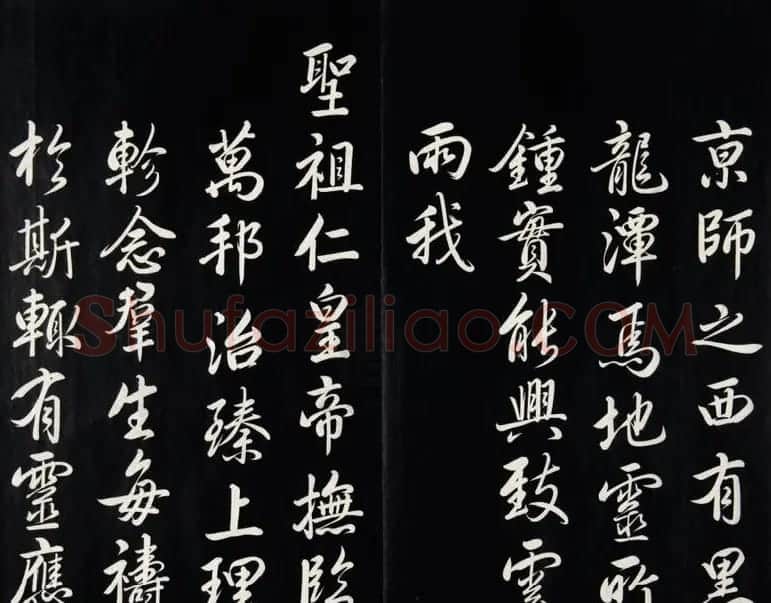 京師之西有黑
龍潭焉地靈所
鍾實能興致雲
雨我
聖祖仁皇帝撫臨
萬邦治臻上理
軫念羣生每禱
於斯輒有靈應
Shufaziliao.COM